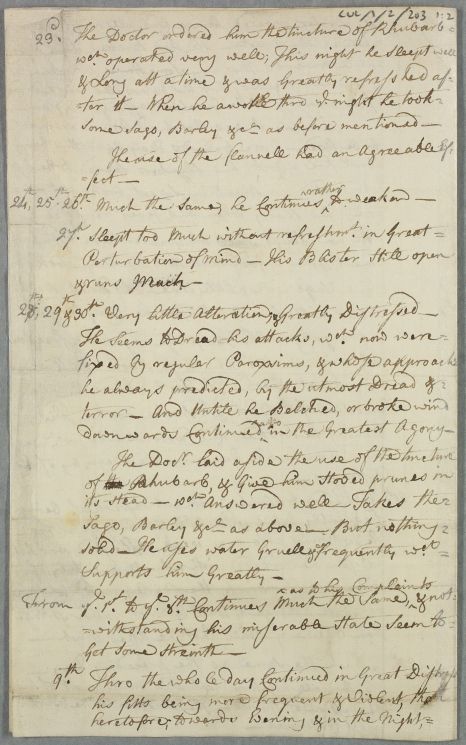 CUL/1/2/203 1:2
23d. The Doctor ordered him the tincture of Rhubarb=
wch. operated very well, This night he Sleept well
& Long att a time & was Greatly refreshed af=
ter it— When he awoke thro ye. night he took=
Some Sago, Barley &c. as before mentioned—
The use of the flannell had an Agreeable Ef=
=fect—
24th, 25th. 26th. Much the Same, he Continues rather to weaken—
27th. Sleept too Much without refreshmt. in Great=
Perturbation of mind— His Blister Still open
& runs Much—
28th, 29th. & 30th. Very little Alteration, Greatly Distressed—
He Seems to Dread his attacks, wch. now were=
fixed by regular Paroxisms, & whose approach
he always predicted, by the utmost Dread &=
terror— And Untile he Belched, or broke wind
downwards Continued in the Greatest Agony—
The Docr. laid aside the use of the tincture
of Rhubarb, & Give him Stoved prunes in
its Stead— wch. Answered well Takes the=
Sago, Barley &c. as above— But nothing=
solid— He uses water Gruell frequently wch.=
Supports him Greatly—
as to his Complaints
Throm ye. 1st. to ye. 8th. Continues Much the Same, & not=
=withstanding his miserable State Seem to=
Get Some Streinth—
9th. Thro the whole day Continued in Great Distress
his fitts being more frequent & Violent, than
heretofore, towards Evening & in the Night,=